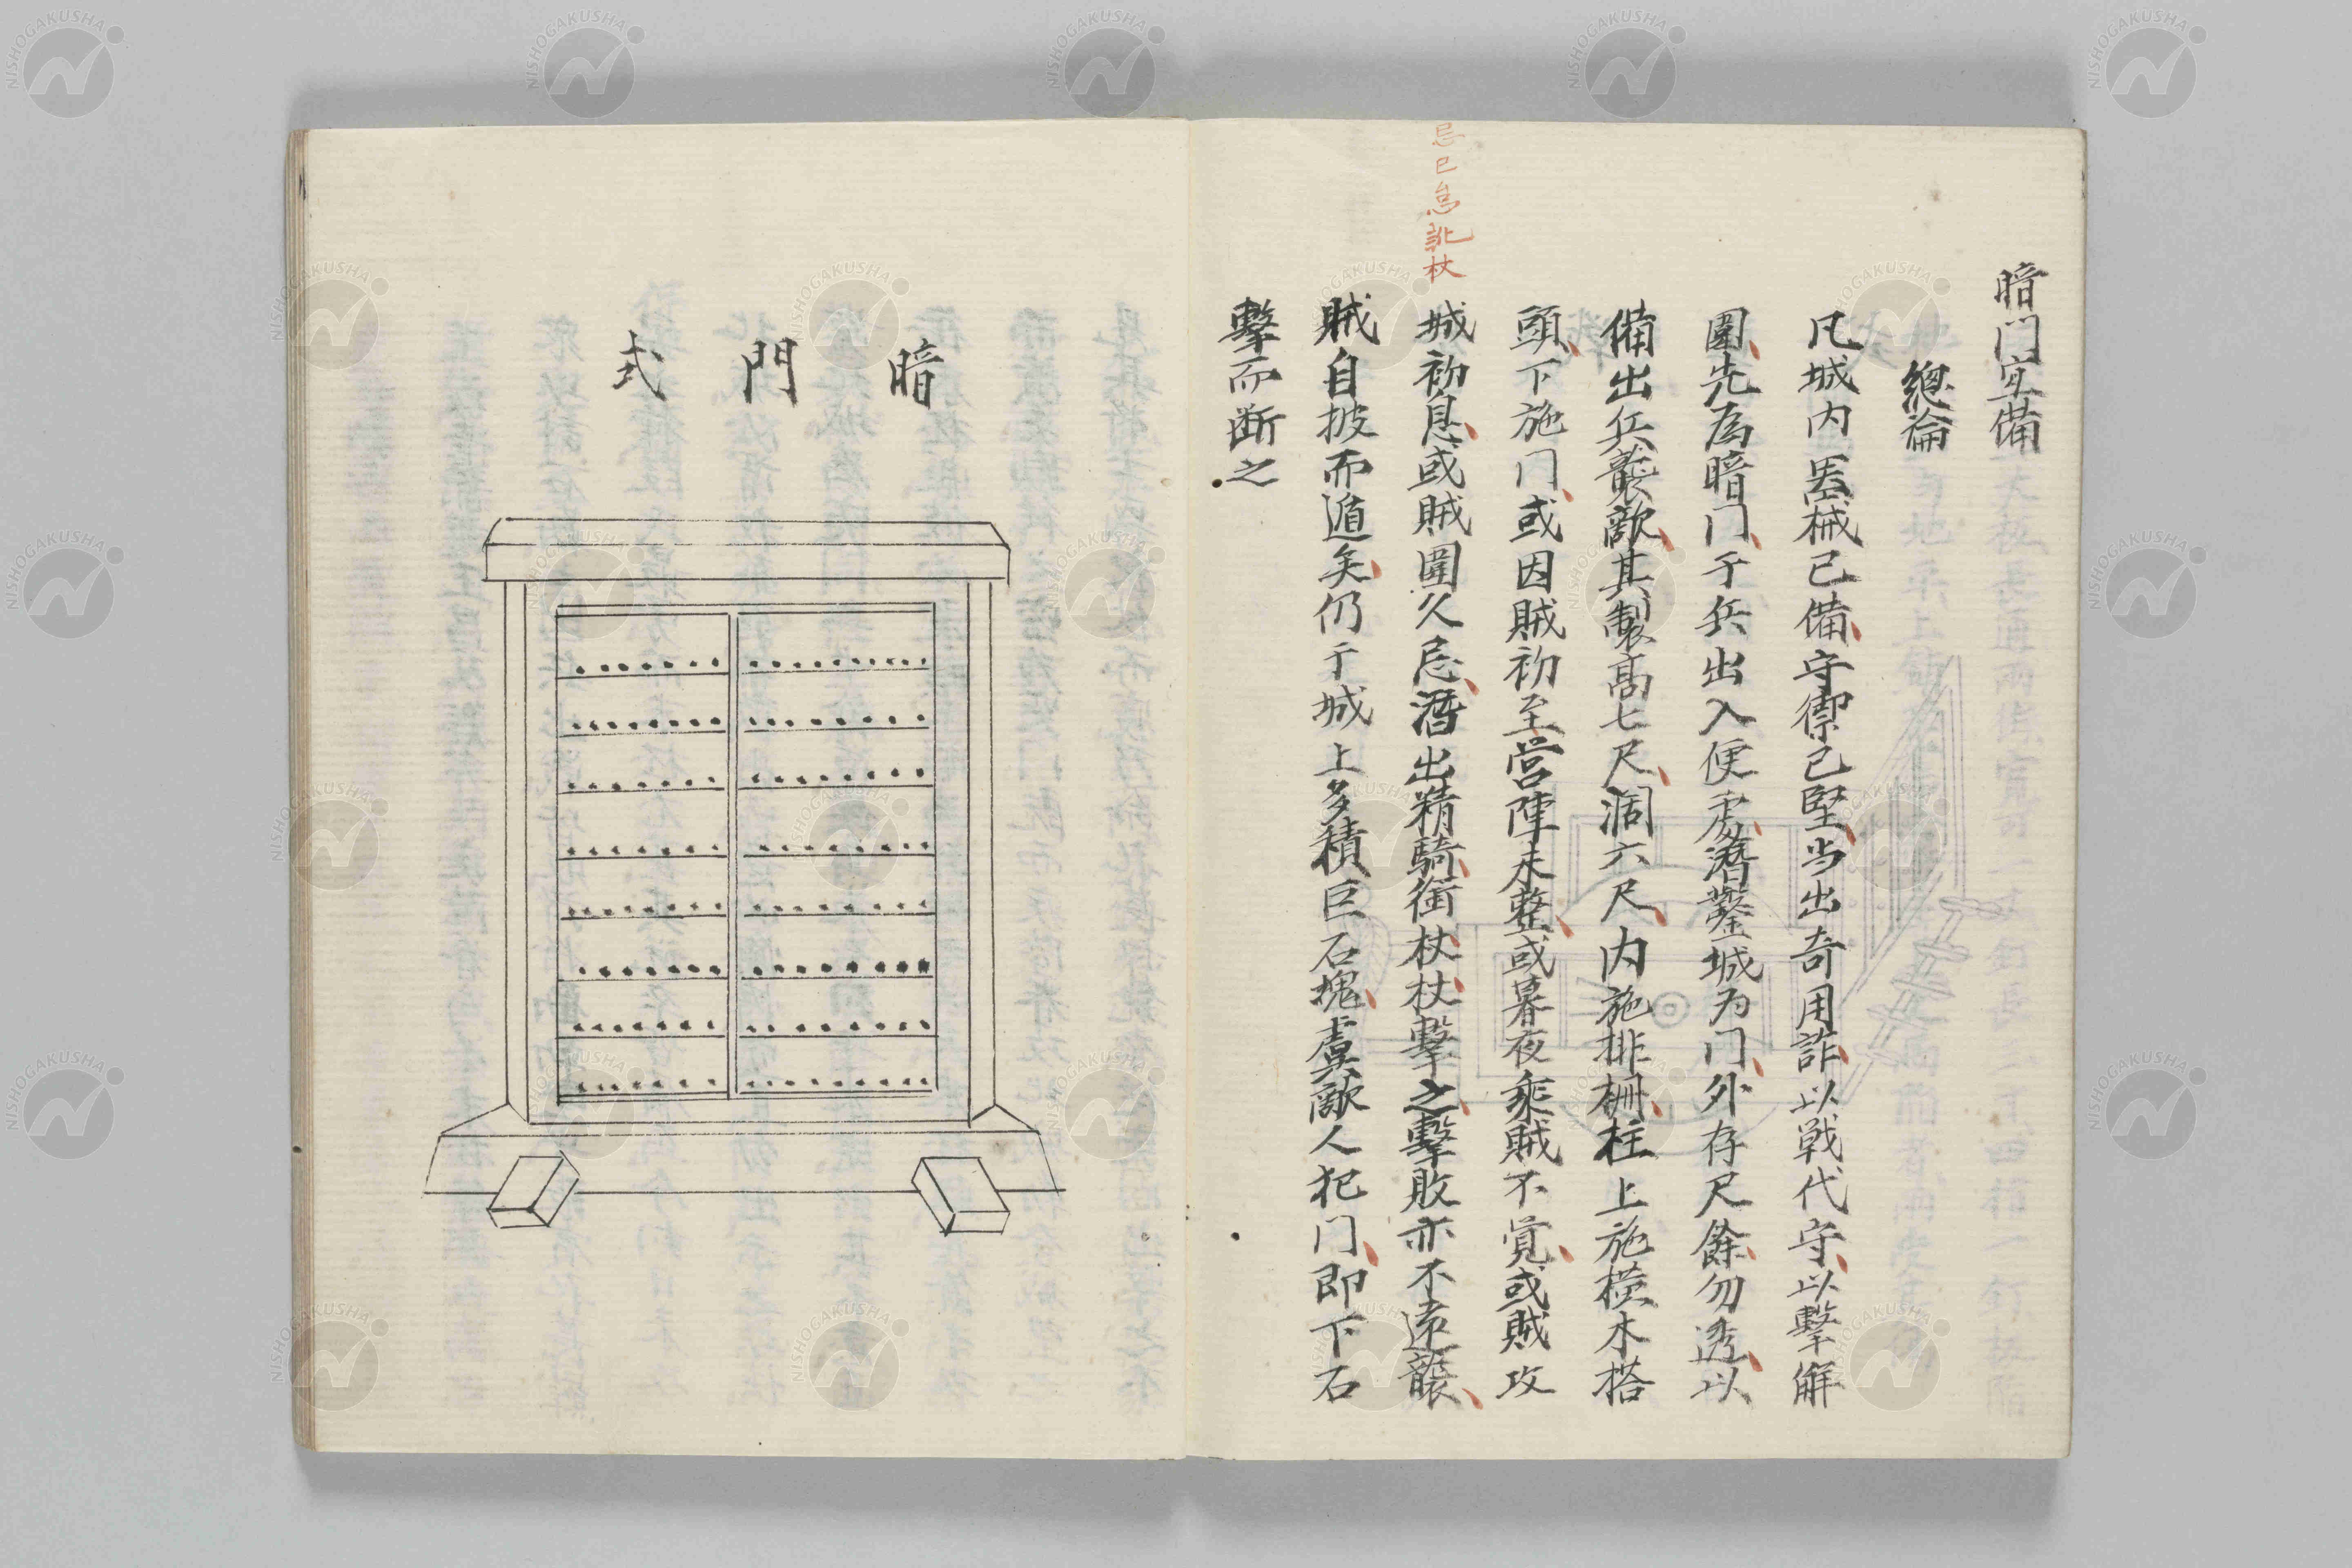 暗门宐備
總論
凡城内噐械已備守禦已堅当出奇用詐以戦代守以擊解
圍先為暗门于兵出入便處潛鑿城为门外存尺餘勿透以
備出兵襲敵其製高七尺濶六尺内施排栅柱上施橫木搭
頭下施门或因賊初至营陣未整或暮夜乘賊不覚或賊攻
城初息或賊圍久忌潛出精騎銜枚杖擊之擊敗亦不遠襲
賊自披而遁矣仍于城上多積巨石塊虞敵人犯门即下石
擊而断之
忌已怠訛杖
暗門式
NISHOGAKUSHA